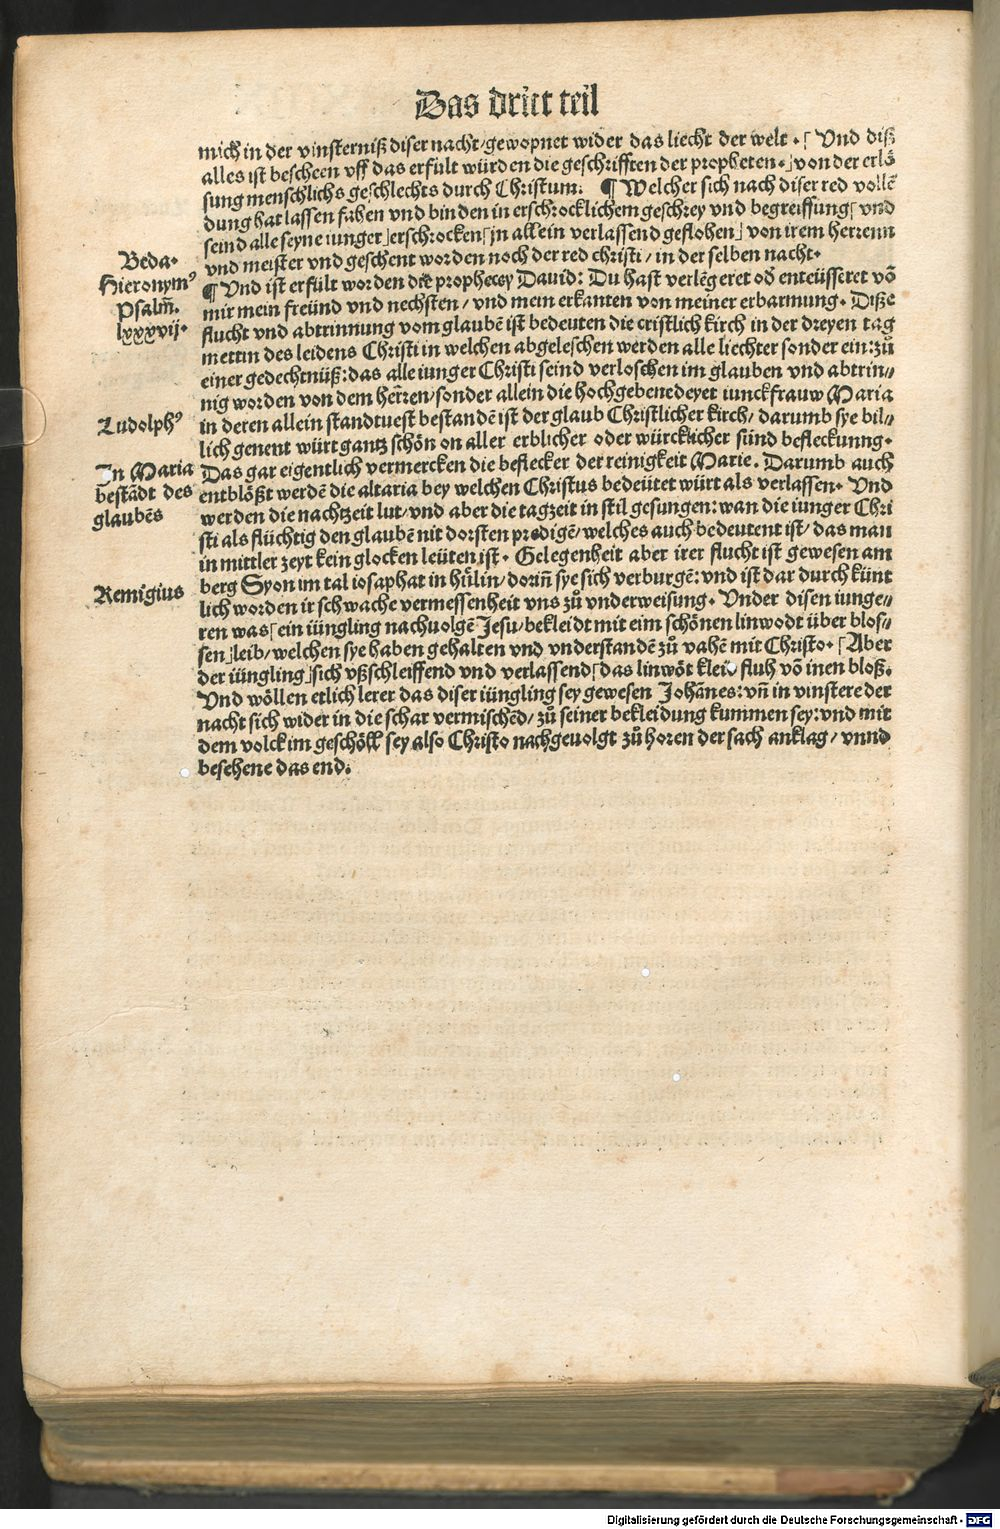 Das dritt teil
mich in der vinsterniß diser nacht/gewopnet wider das liecht der welt .⌈ Vnd diß
alles ist bescheen vff das erfült würden die geschrifften der propheten.⌋von der erlö
sung menschlichs geschlechts durch Christum. ¶ Welcher sich nach diser red vollē
dung hat lassen fahen vnd binden in erschrocklichem geschrey vnd begreiffung⌈ vnd
seind alle seyne iunger⌋erschrocken⌈jn allein verlassend geflohen⌋ von irem herrenn
vnd meister vnd geschent worden noch der red christi/ in der selben nacht.
¶ Vnd ist erfült worden die prophecey Dauid: Du hast verlēgeret od̄ enteüsseret vō
mir mein freünd vnd nechsten/ vnd mein erkanten von meiner erbarmung. Diße
flucht vnd abtrinnung vom glaubē ist bedeuten die cristlich kirch in der dreyen tag
mettin des leidens Christi in welchen abgeleschen werden alle liechter sonder ein: zů
einer gedechtnüß: das alle iunger Christi seind verloschen im glauben vnd abtrin⸗
nig worden von dem herren/sonder allein die hochgebenedeyet iunckfrauw Maria
in deren allein standtuest bestandē ist der glaub Christlicher kirch/ darumb sye bil⸗
lich genent würt gantz schön on aller erblicher oder würcklicher sünd befleckunng.
Das gar eigentlich vermercken die beflecker der reinigkeit Marie. Darumb auch
entblößt werdē die altaria bey welchen Christus bedeütet würt als verlassen. Vnd
werden die nachtzeit lut/vnd aber die tagzeit in stil gesungen: wan die iunger Chri
sti als flüchtig den glaubē nit dorsten predigē/welches auch bedeutent ist/das man
in mittler zeyt kein glocken leüten ist. Gelegenheit aber irer flucht ist gewesen am
berg Syon im tal iosaphat in hülin/dorinn̄ sye sich verburgē: vnd ist dar durch künt
lich worden ir schwache vermessenheit vns zů vnderweisung. Vnder disen iunge⸗
ren was⌈ein iüngling nachuolgē Jesu/bekleidt mit eim schönen linwodt über blos⸗
sen⌋leib/welchen sye haben gehalten vnd vnderstandē zů vahē mit Christo.⌈Aber
der iüngling⌋sich vßschleiffend vnd verlassend⌈das linwöt kleid fluh vō inen bloß.
Vnd wöllen etlich lerer das diser iüngling sey gewesen Johānes: vn̄ in vinstere der
nacht sich wider in die schar vermischēd/ zů seiner bekleidung kummen sey: vnd mit
dem volck im geschöll sey also Christo nachgeuolgt zů horen der sach anklag/ vnnd
besehene das end.
Beda.
Hieronymꝰ
Psalm̄.
lxxxvij.
Ludolphꝰ
In Maria
bestādt des
glaubēs
Remigius
Digitalisierung gefördert durch die Deutsche Forschungsgemeinschaft - DFG